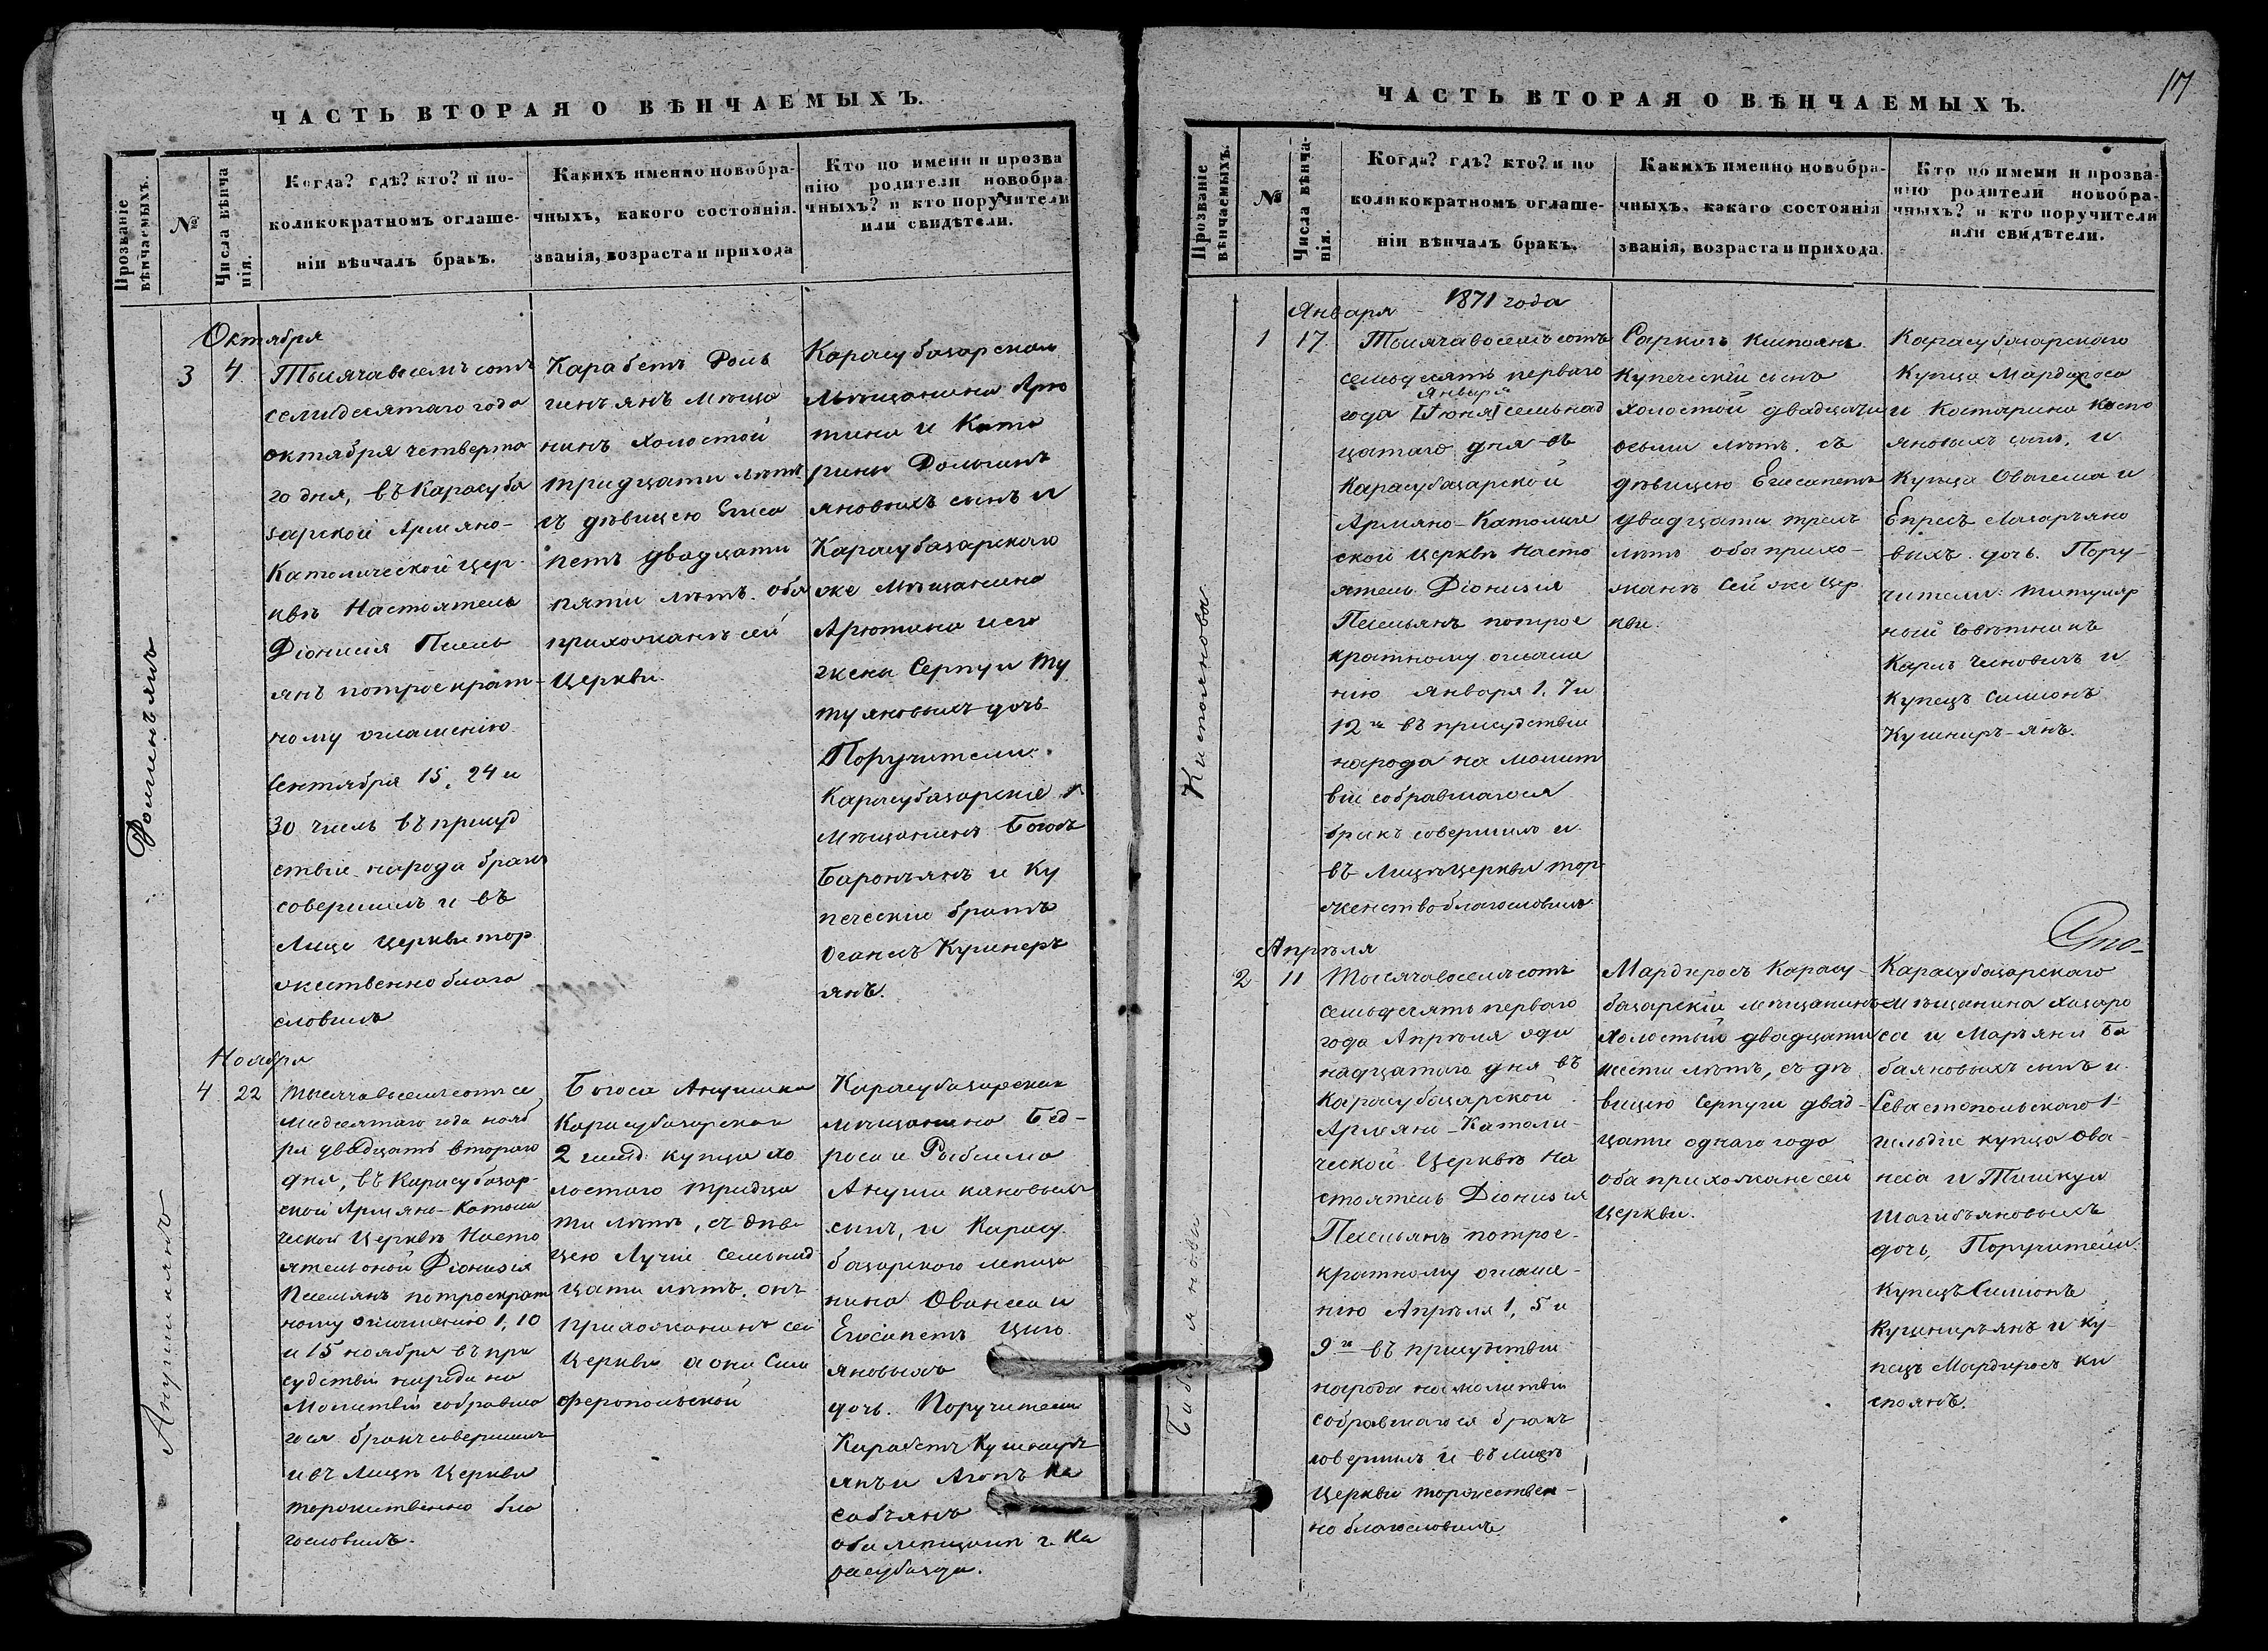 ЧАСТЬ ВТОРАЯ О ВѢНЧАЕМЫХЪ.
Прозваніе
вѣнчаемыхъ.
№
Числа вѣнча
нія.
Когда? гдѣ? кто? и по-
коликократномъ оглаше-
ніи вѣнчалъ бракъ.
Какихъ именно новобра-
чныхъ, какого состоянія.
званія, возраста и прихода
Кто по имени и прозва
нію родители новобра
чныхъ? и кто поручители
или свидѣтели.
Октября
3
4
Тысячавосемъсотъ
семидесятаго года
октября четверта
го дня, въ Карасуба
зарской Армяно-
Католической цер-
квѣ Настоятель
Діонисія
янъ потроекрат-
ному оглашенію
Сентября 15, 24 и
30 числъ въ присуд
ствіе народа бракъ
совершилъ и въ
Лице церкви тор
жественно благо
словилъ
Карабетъ
мѣща
нинъ холостой
тридцати лѣтъ
съ дѣвицею Егиса
петъ двадцати
пяти лѣтъ. оба
прихожанъ сей
Церкви.
Карасубазарскаго
мѣщанина Арю
тина и Ката
рины
яновыхъ сынъ и
Карасубазарскаго
же мѣщанина
Арютина и его
жены Серпуи Ту
туяновыхъ дочь
Поручители:
Карасубазарскіе
мѣщанинъ Богосъ
Баронъянъ и Ку
печескій братъ
Оганесъ Кушнеръ
янъ.
Ноября
4
22
Тысячавосемъсотъ се
мидесятаго года нояб
ря двадцать втораго
дня, въ Карасубазар-
ской Армяно-Католи
ческой Церквѣ Насто
ятель оной Діонизія
потроекрат
ному оглашенію 1, 10
и 15 ноября въ при
судствіи народа на
Молитвіи собравша
гося бракъ совершилъ
и въ Лицѣ Церкви
торжественно бла
гословилъ.
Анушканъ
Богоса Анушка
Карасубазарскаго
2 гильд. купца хо
лостаго тридца
ти лѣтъ, съ дѣви
цею Лучіе семьнад
цати лѣтъ. онъ
прихожанинъ сей
Церкви а она Сим
феропольской
Карасубазарскаго
мѣщанина Бед-
роса и Рыбсима
Анушкановыхъ
сынъ, и Карасу
базарскаго мѣща
нина Ованеса и
Егисапетъ
яновыхъ
дочь. Поручители
Карабетъ Кушнеръ
янъ и Агопъ Ка
сабъянъ
оба мѣщани г. Ка
расубазара.
17
ЧАСТЬ ВТОРАЯ О ВѢНЧАЕМЫХЪ.
Прозваніе
вѣнчаемыхъ.
№
Числа вѣнча-
нія.
Когда? гдѣ? кто? и по
коликократномъ оглаше-
ніи вѣнчалъ бракъ.
Какихъ именно новобра-
чныхъ, какаго состоянія
званія, возраста и прихода.
Кто по имени и прозва-
нію родители новобра-
чныхъ? и кто поручители
или свидѣтели.
1871 года
Января
1
17
Тысячавосемьсотъ
семьдесятъ перваго
Января
года [Іюня] семьнад
цатаго дня въ
Карасубазарской
Армяно-Католиче
ской Церквѣ Насто
ятель Діонизія
потрое
кратному оглаше
нію Января 1, 7 и
12го въ присудствіи
народа на молит
віи собравшагося
бракъ совершилъ и
въ Лицѣ церкви тор
женство благословилъ
Саркисъ
Купеческій сынъ
холостой двадцати
осьми лѣтъ. съ
дѣвицею Егисапетъ
двадцати трехъ
лѣтъ оба прихо-
жанъ сей же Цер
кви.
Карасубазарскаго
Купца Мардироса
и Катарина Киспо
яновыхъ сынъ, и
Купца Ованеса и
Епресъ Лазаръяно
выхъ дочь. Пору-
чители: титуляр
ный Совѣтникъ
Карлъ и
Купецъ Симіонъ
Кушниръ-янъ.
Киспоянова
Апрѣля
2
11
Тысячавосемъсотъ
семьдесять перваго
года Апрѣля оди
надцатаго дня въ
Карасубазарской
Армяно-Католи-
ческой Церквѣ На
стоятель Діонизія
потрое-
кратному оглаше-
нію Апрѣля 1, 5 и
9го въ присутствіи
народа на молитвіи
собравшагося бракъ
совершилъ и въ лицѣ
Церкви торжествен-
но благословилъ.
Мардиросъ Карасу-
базарскій мѣщанинъ
Холостый двадцати
шести лѣтъ, съ дѣ
вицею Серпуги двад-
цати однаго года
оба прихожане сей
Церкви.
Карасубазарскаго
мѣщанина Хазаро
са и Маръяни Ба
баяновыхъ сынъ и
Севастопольскаго 1й
гильдіи купца Ова-
неса и
Шагибъяновыхъ
дочь, Поручители:
Купецъ Симіонъ
Кушниръянъ и Ку-
пецъ Мардиросъ Ки
споянъ.